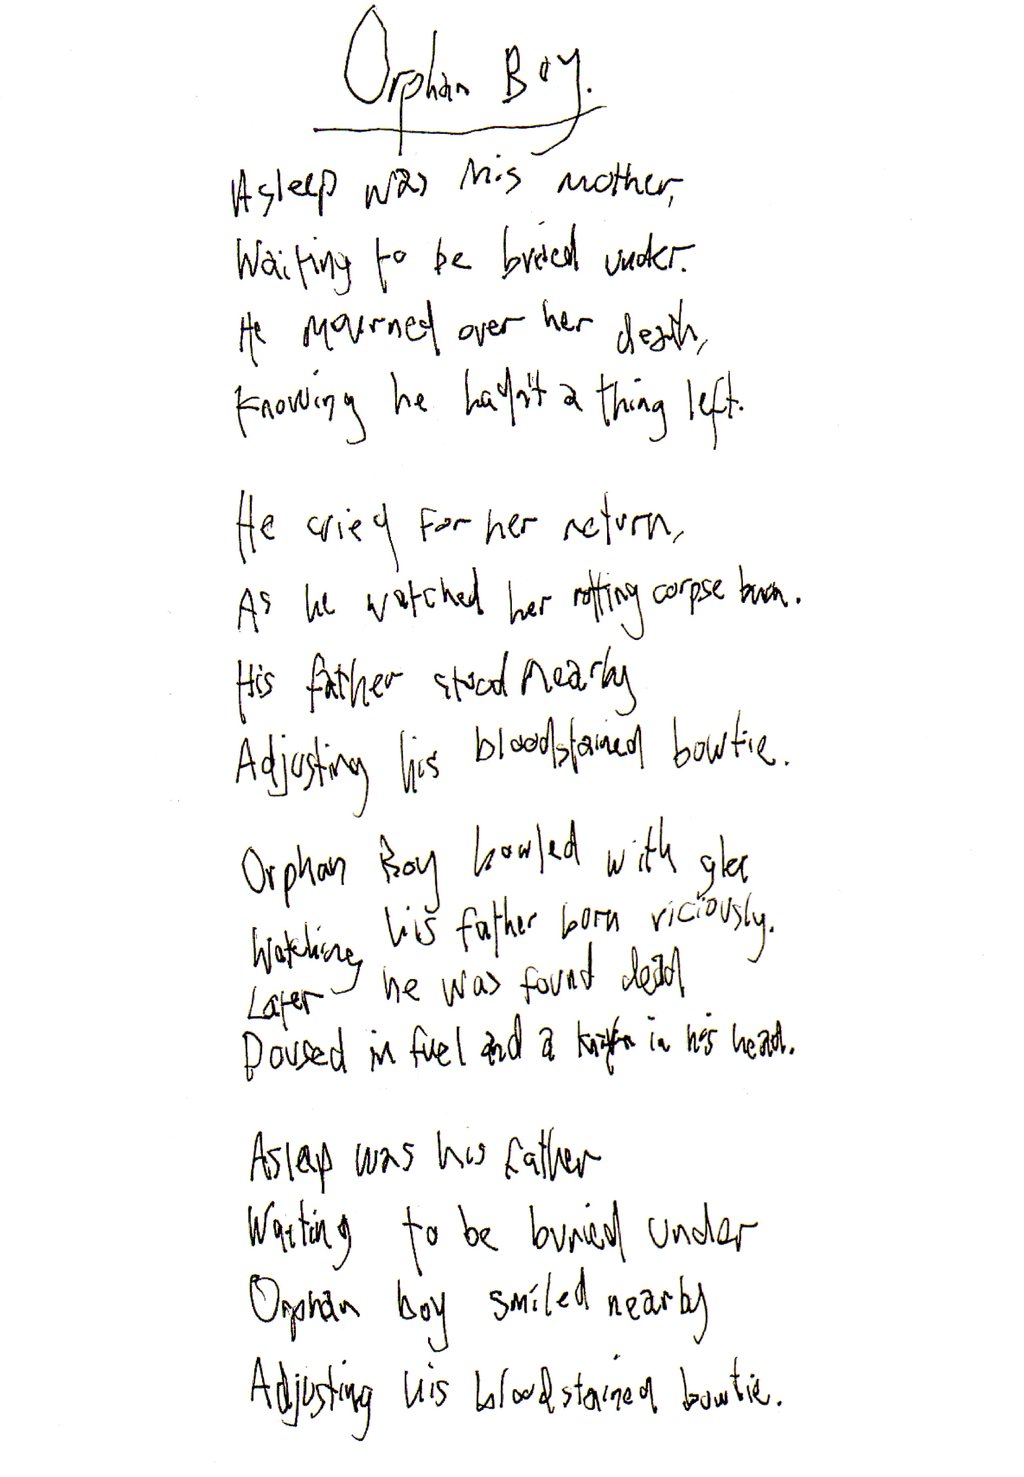 Orphan Boy.
Asleep was his mother,
Waiting to be buried under.
He mourned over her death,
Knowing he hadn't a thing left.
He cried for her return,
As he watched her rotting corpse burn.
His father stood nearby
Adjusting his bloodstained bowtie.
Orphan Boy howled with glee
Watching his father born viciously.
Later he was found dead
Doused in fuel and a knife in his head.
Asleep was his father
Waiting to be buried under
Orphan boy smiled nearby
Adjusting his bloodstained bowtie.